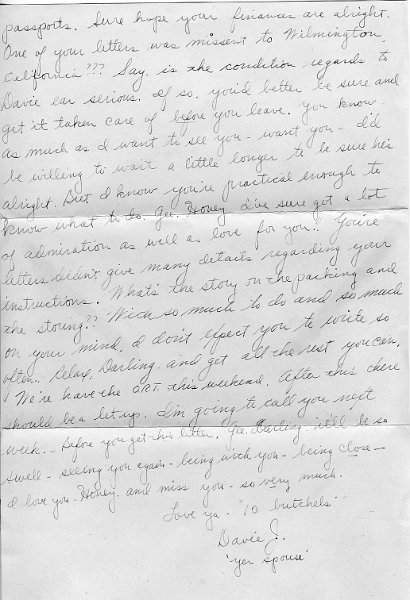 passports. Sure hope your finances are alright.
One of your letters was missent to Wilmington,
California??? Say, is the condition regards to
Davie ear serious. If so, you'd better be sure and
get it taken care of before you leave. You know
as much as I want to see you - want you - I'd
be willing to wait a little longer to be sure he's
alright. But I know you're practical enough to
know what to do. Gee, Honey I've sure got a lot
of admiration as well as love for you.. You're
letters didn't give many details regarding your
instructions. What's the story on the packing and
the storing?? With so much to do and so much
on your mind, I don't expect you to write so
often.. Relax, Darling, and get all the rest you can.
We're have the ORT this weekend. After this there
should be a let up. I'm going to call you next
week... Before you get this letter. Gee, Darling it'll be so
swell - seeing you again - being with you - being close -
I love you - Honey, and miss you - so very much.
Love ya - "10 butchels"
Davie J.
"yer spouse"